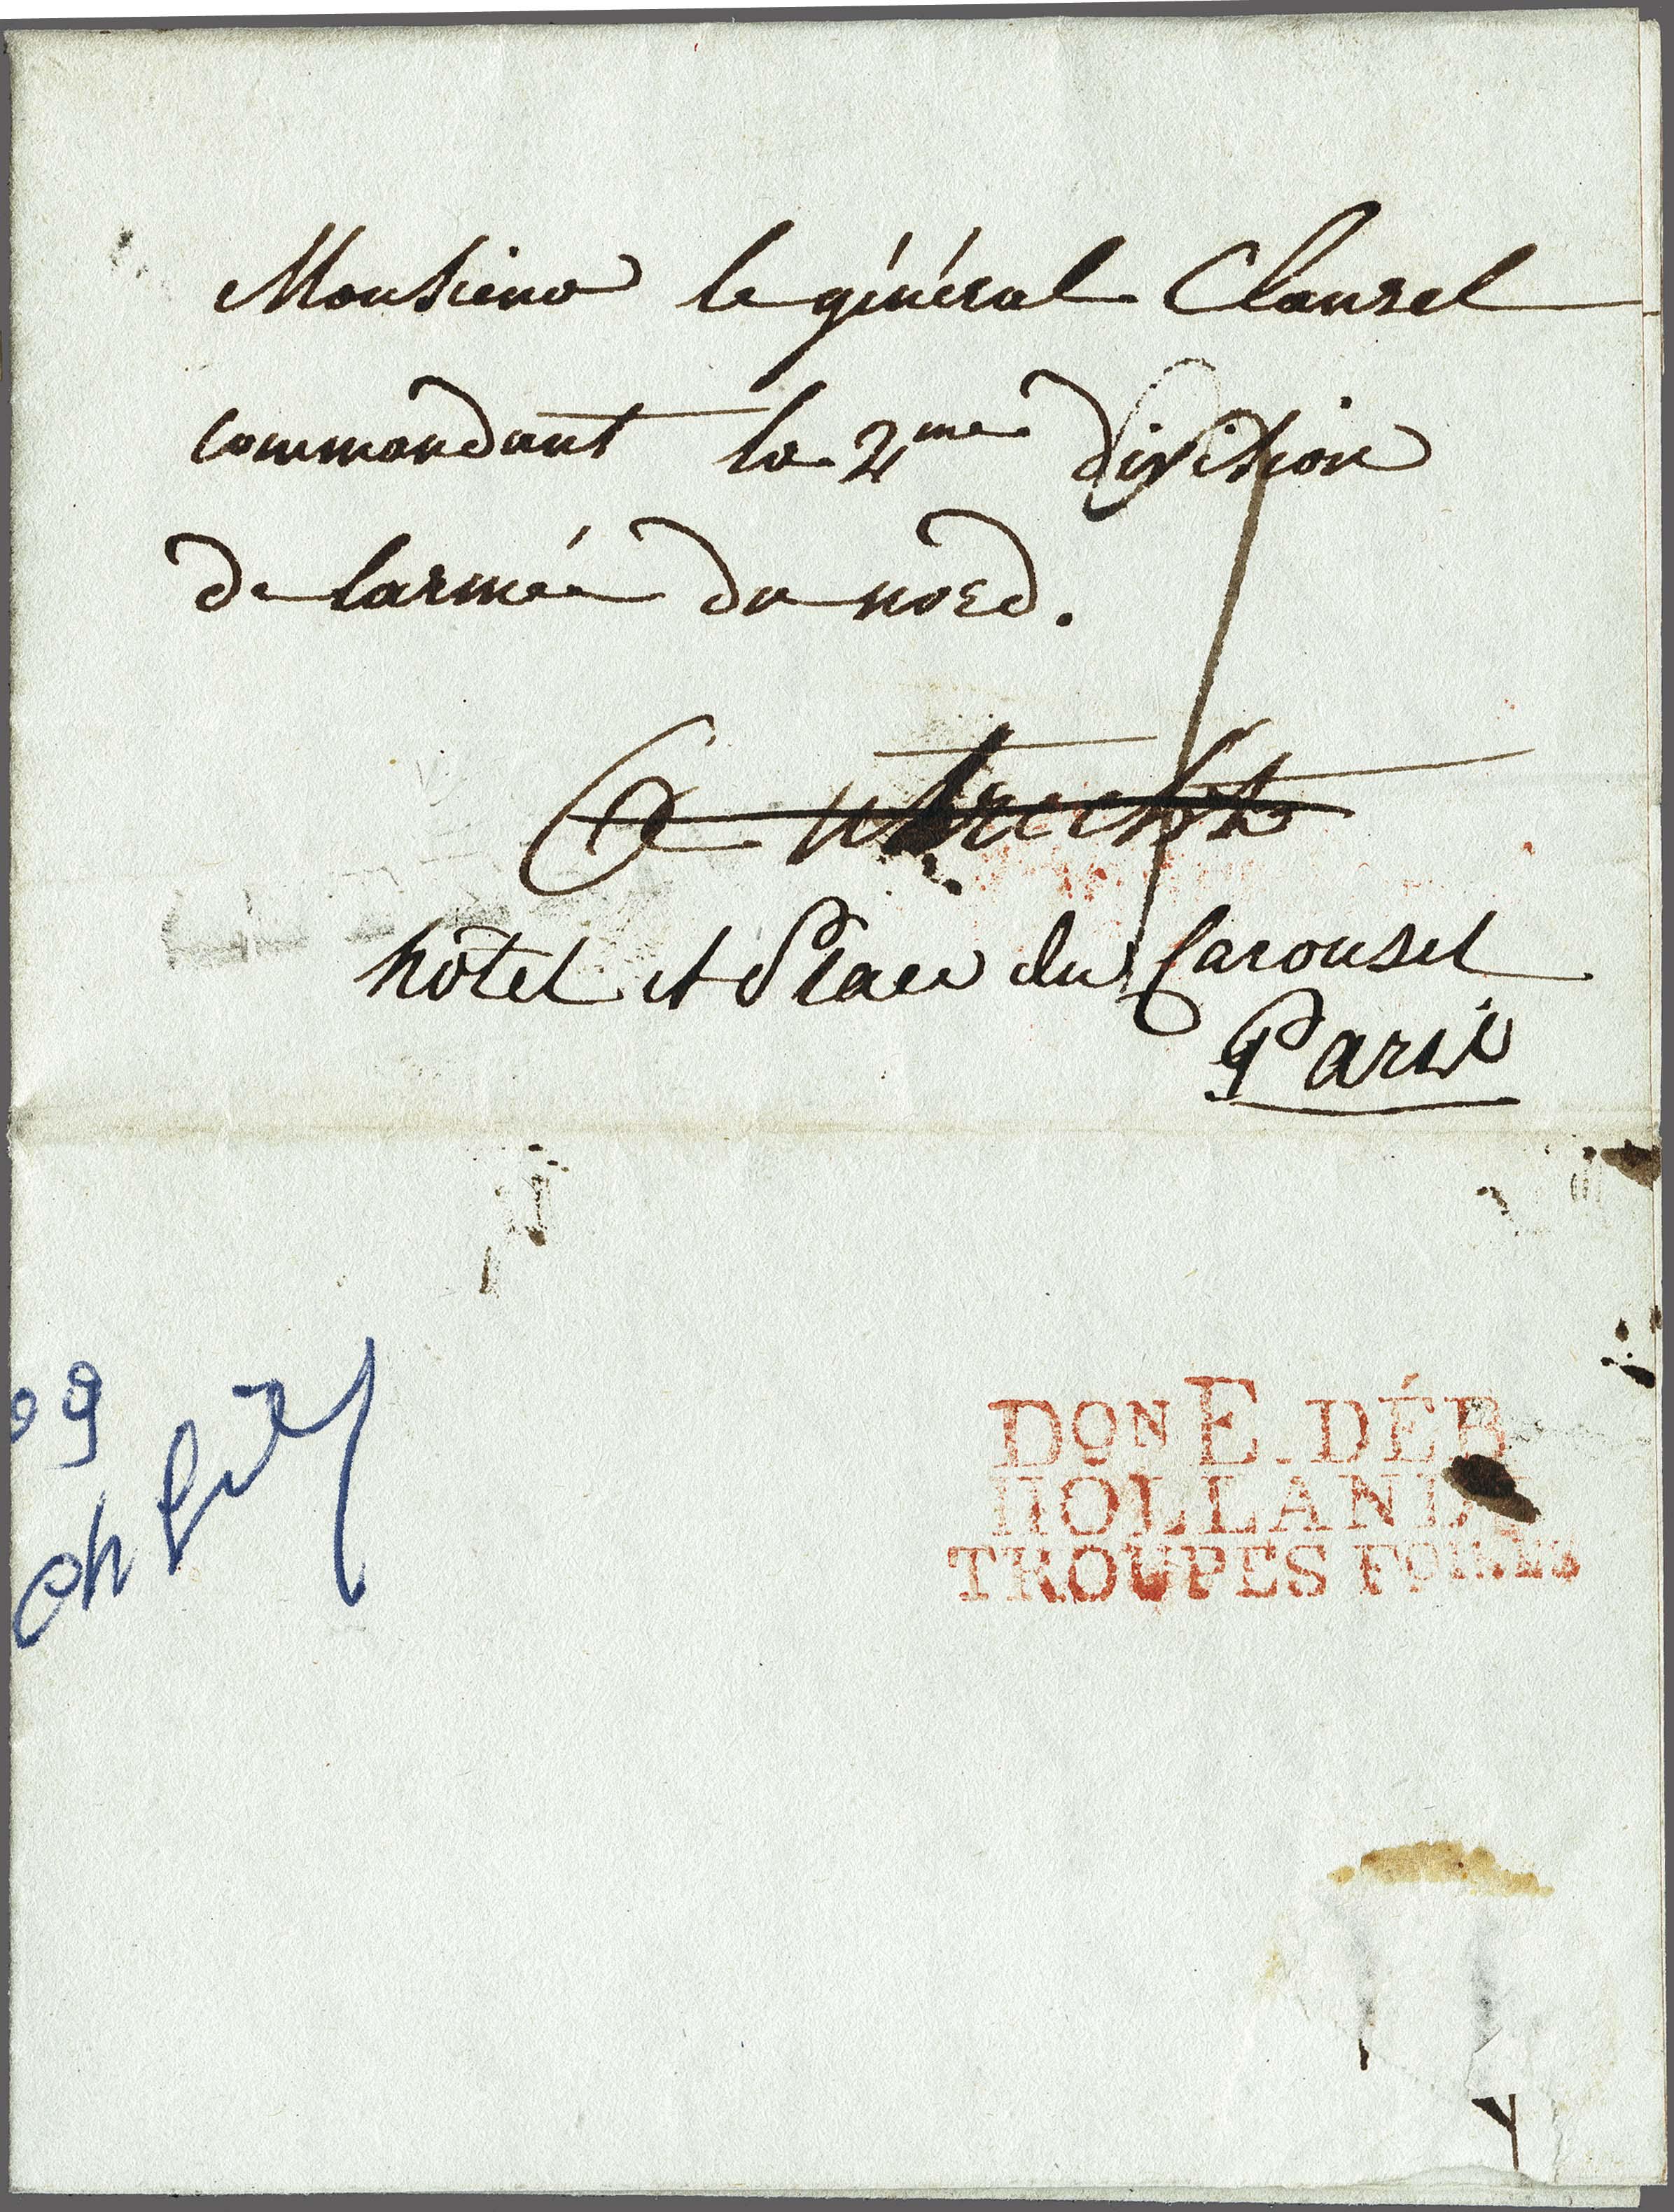 Monsieur le général Clausel
commandant la 2me division
de larmée du nord.
A utrecht
hôtel et Place du Carousel
Paris
DON E. DÉB
HOLLAND
TROUPES FOISES